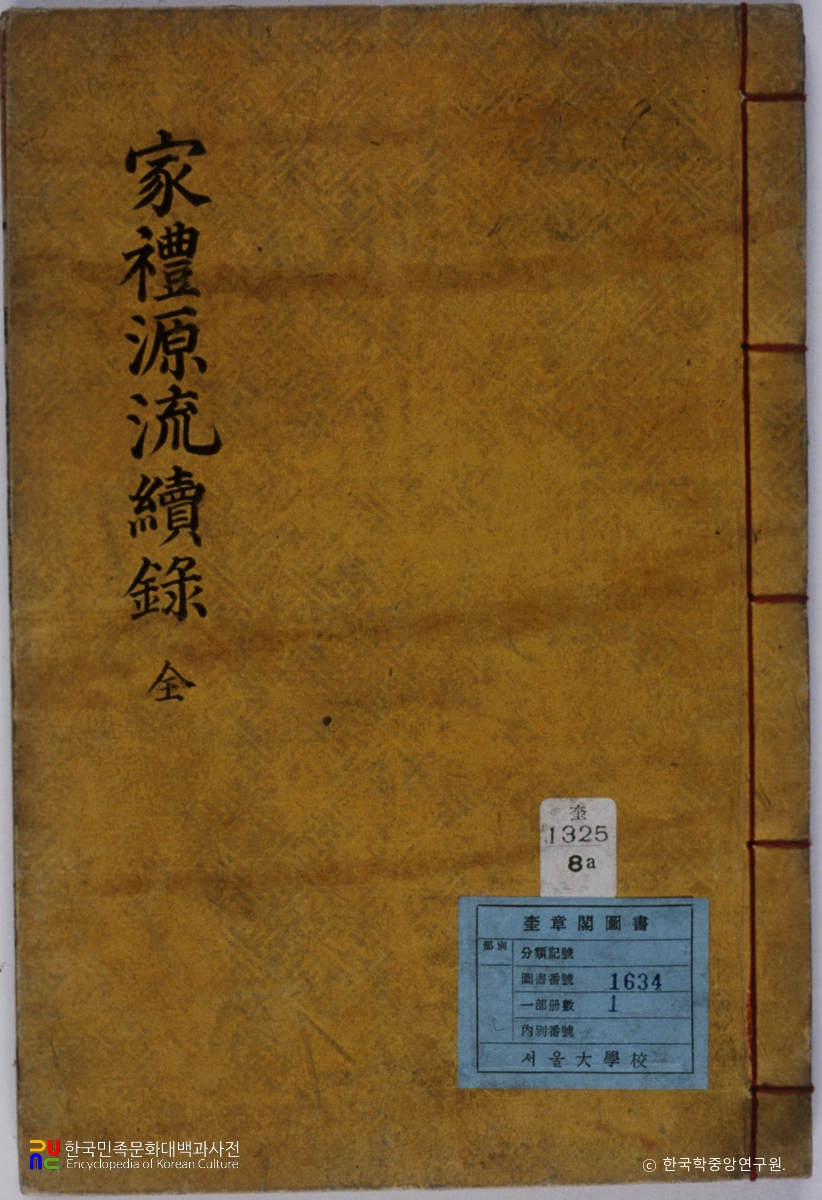 家禮源流續錄 全
奎
1325
8a
奎章閣圖書
部別
分類記號
圖書番號 1634
一部冊數 1
內別番號
서울大學校
한국민족문화대백과사전
Encyclopedia of Korean Culture
© 한국학중앙연구원.